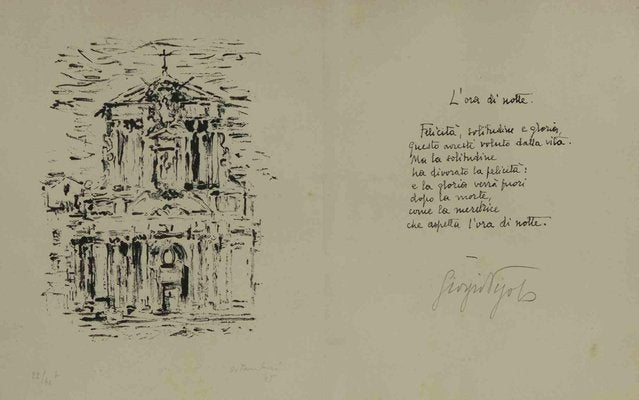 L'ora di notte.
Felicità, solitudine e gloria,
questo avresti voluto dalla vita.
Ma la solitudine
ha divorato la felicità:
e la gloria verrà fuori
dopo la morte,
come la meretrice
che aspetta l'ora di notte.
Giorgio Vigolo